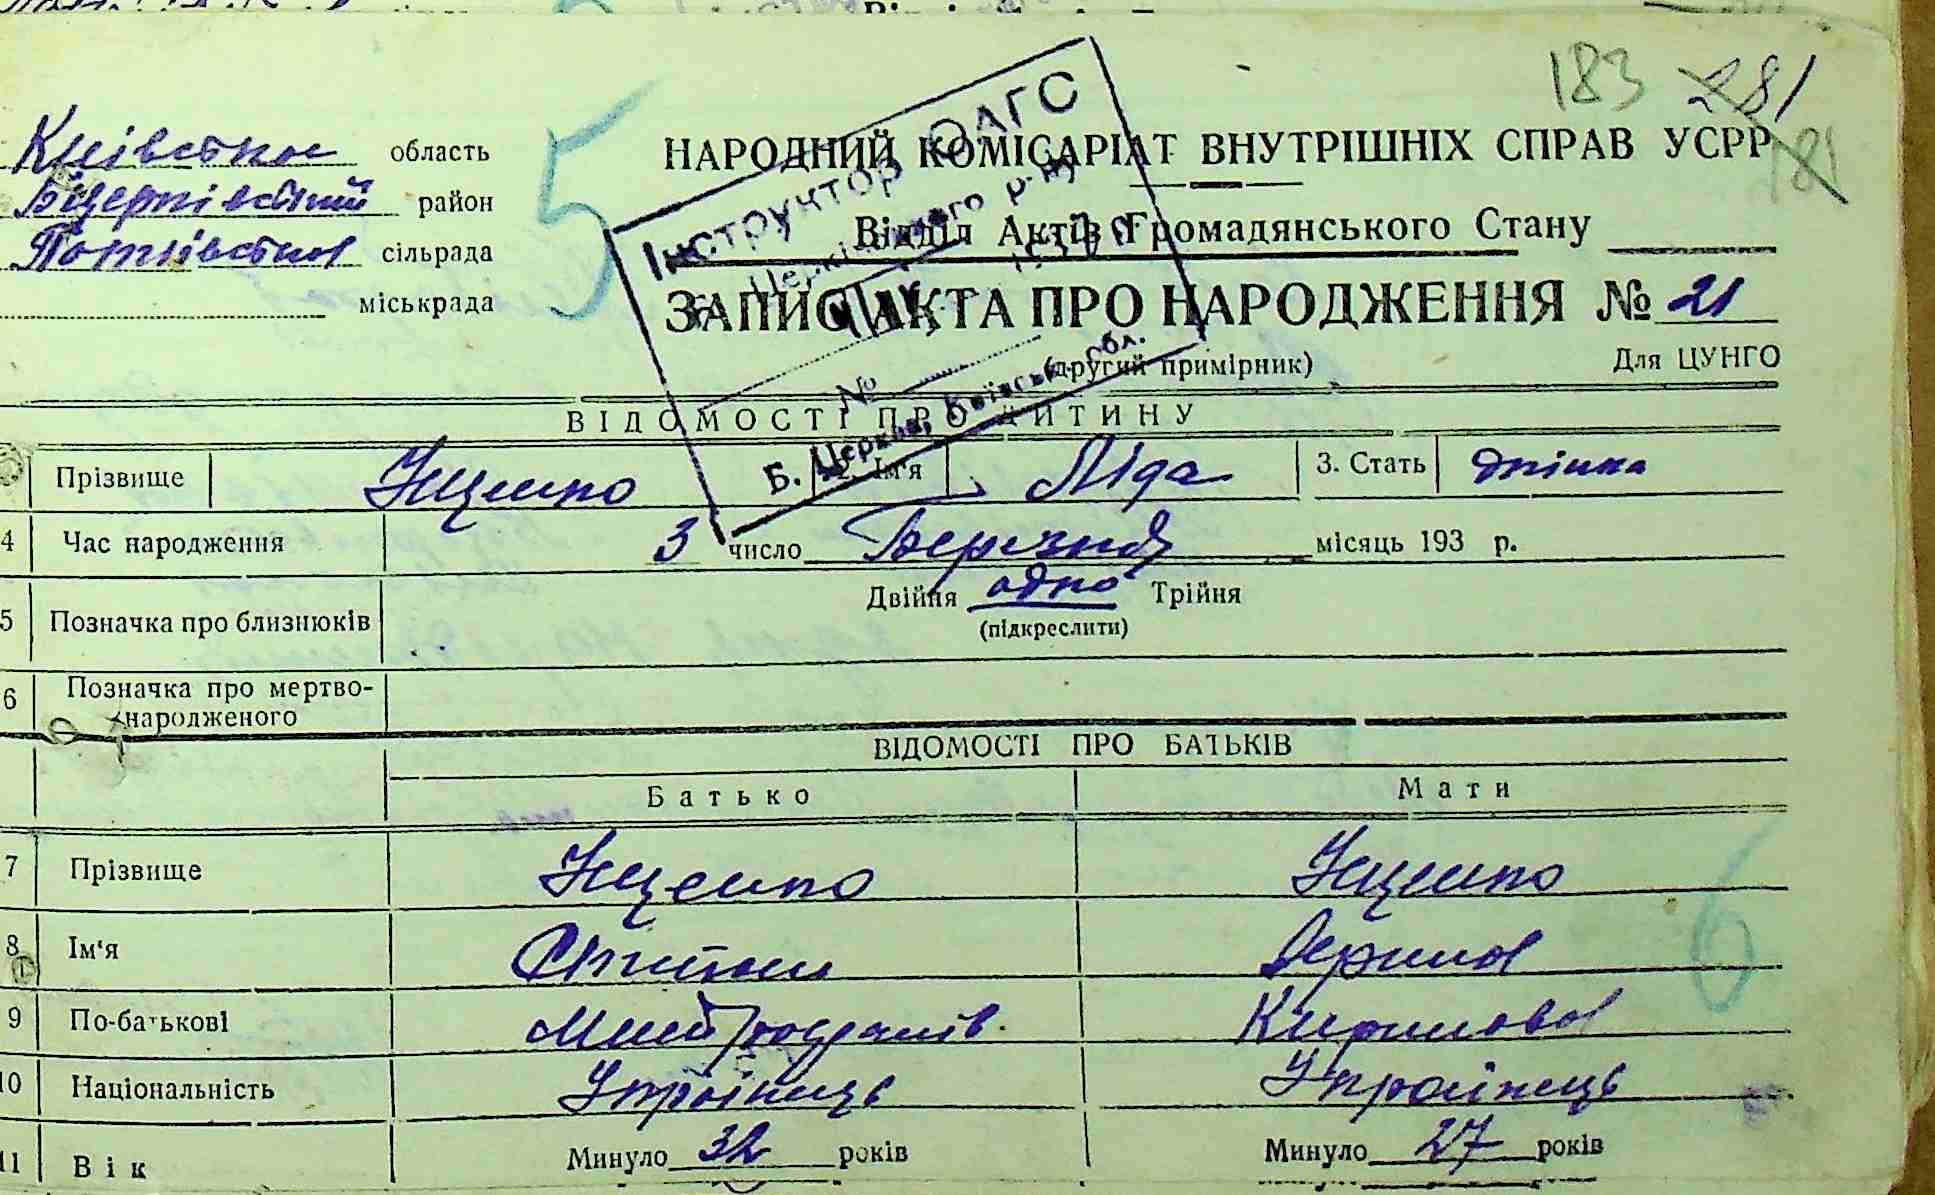 183 281
181
Київська область
Біцерківський район
сільрада
міськрада
5
НАРОДНИЙ КОМІСАРІАТ ВНУТРІШНІХ СПРАВ УСРР
Відділ Актів Громадянського Стану
ЗАПИС АКТА ПРО НАРОДЖЕННЯ № 21
(другий примірник) Для ЦУНГО
Інструктор ОАГС
Б. Церківського р-ну
№
Б. Церква, Київськ. обл.
ВІДОМОСТІ ПРО ДИТИНУ
Прізвище Іщенко 2. Ім'я Ліда 3. Стать
4 Час народження 3 число Березня місяць 193 р.
5 Позначка про близнюків Двійня одно Трійня
(підкреслити)
6 Позначка про мертво-
народженого
ВІДОМОСТІ ПРО БАТЬКІВ
Батько Мати
7 Прізвище Іщенко Іщенко
8 Ім'я
9 По-батькові Кирилова
10 Національність Українець Українець
11 Вік Минуло 32 років Минуло 27 років
6